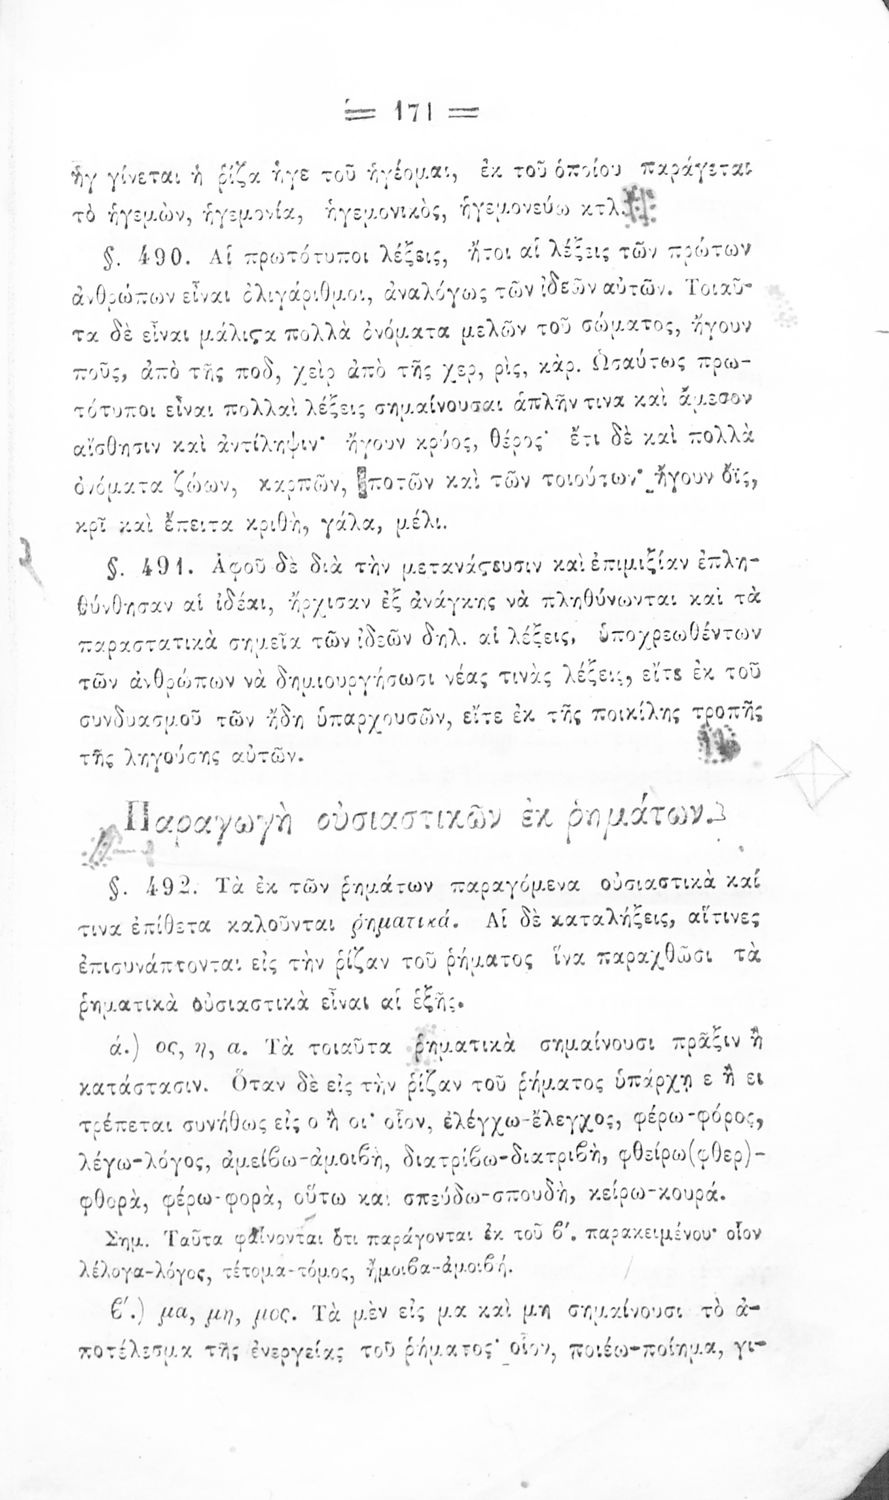 = 171 =
ἡγ γίνεται ἡ ῥίζα ἡγε τοῦ ἡγέομαι, ἐκ τοῦ ὁποίου παράγεται
τὸ ἡγεμὼν, ἡγεμονία, ἡγεμονικὸς, ἡγεμονεύω κτλ.
§. 490. Αἱ πρωτότυποι λέξεις, ἤτοι αἱ λέξεις τῶν πρώτων
ἀνθρώπων εἶναι ὀλιγάριθμοι, ἀναλόγως τῶν ἰδεῶν αὐτῶν. Τοιαῦ-
τα δὲ εἶναι μάλιϛα πολλὰ ὀνόματα μελῶν τοῦ σώματος, ἤγουν
ποῦς, ἀπὸ τῆς ποδ, χεὶρ ἀπὸ τῆς χερ, ρὶς, κὰρ. Ὡσαύτως πρω-
τότυποι εἶναι πολλαὶ λέξεις σημαίνουσαι ἁπλῆν τινα καὶ ἄμεσον
αἴσθησιν καὶ ἀντίληψιν· ἤγουν κρύος, θέρος· ἔτι δὲ καὶ πολλὰ
ὀνόματα ζώων, καρπῶν, ποτῶν καὶ τῶν τοιούτων· ἤγουν ὄϊς,
κρῖ καὶ ἔπειτα κριθὴ, γάλα, μέλι.
§. 491. Ἀφοῦ δὲ διὰ τὴν μετανάϛευσιν καὶ ἐπιμιξίαν ἐπλη-
θύνθησαν αἱ ἰδέαι, ἤρχισαν ἐξ ἀνάγκης νὰ πληθύνωνται καὶ τὰ
παραστατικὰ σημεῖα τῶν ἰδεῶν δηλ. αἱ λέξεις, ὑποχρεωθέντων
τῶν ἀνθρώπων νὰ δημιουργήσωσι νέας τινὰς λέξεις, εἴτε ἐκ τοῦ
συνδυασμοῦ τῶν ἤδη ὑπαρχουσῶν, εἴτε ἐκ τῆς ποικίλης τροπῆς
τῆς ληγούσης αὐτῶν.
Παραγωγὴ οὐσιαστικῶν ἐκ ῥημάτων.
§. 492. Τὰ ἐκ τῶν ῥημάτων παραγόμενα οὐσιαστικὰ καί
τινα ἐπίθετα καλοῦνται ῥηματικά. Αἱ δὲ καταλήξεις, αἵτινες
ἐπισυνάπτονται εἰς τὴν ῥίζαν τοῦ ῥήματος ἵνα παραχθῶσι τὰ
ῥηματικὰ οὐσιαστικὰ εἶναι αἱ ἑξῆς.
ά.) ος, η, α. Τὰ τοιαῦτα ῥηματικὰ σημαίνουσι πρᾶξιν ἢ
κατάστασιν. Ὅταν δὲ εἰς τὴν ῥίζαν τοῦ ῥήματος ὑπάρχῃ ε ἢ ει
τρέπεται συνήθως εἰς ο ἢ οι· οἷον, ἐλέγχω-ἔλεγχος, φέρω-φόρος,
λέγω-λόγος, ἀμείϐω-ἀμοιϐὴ, διατρίϐω-διατριϐὴ, φθείρω(φθερ)-
φθορὰ, φέρω-φορὰ, οὕτω καὶ σπεύδω-σπουδὴ, κείρω-κουρά.
Σημ. Ταῦτα φαίνονται ὅτι παράγονται ἐκ τοῦ ϐ′. παρακειμένου· οἷον
λέλογα-λόγος, τέτομα-τόμος, ἤμοιϐα-ἀμοιϐή.
ϐ′.) μα, μη, μος. Τὰ μὲν εἰς μα καὶ μη σημαίνουσι τὸ ἀ-
ποτέλεσμα τῆς ἐνεργείας τοῦ ῥήματος· οἷον, ποιέω-ποίημα, γι-